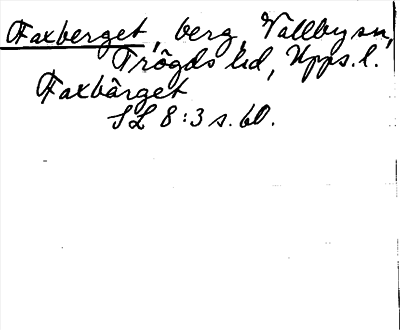 Faxberget, berg, Vallby sn,
Trögds hd, Upps. l.
Faxbärget
SL 8:3 s. 60.